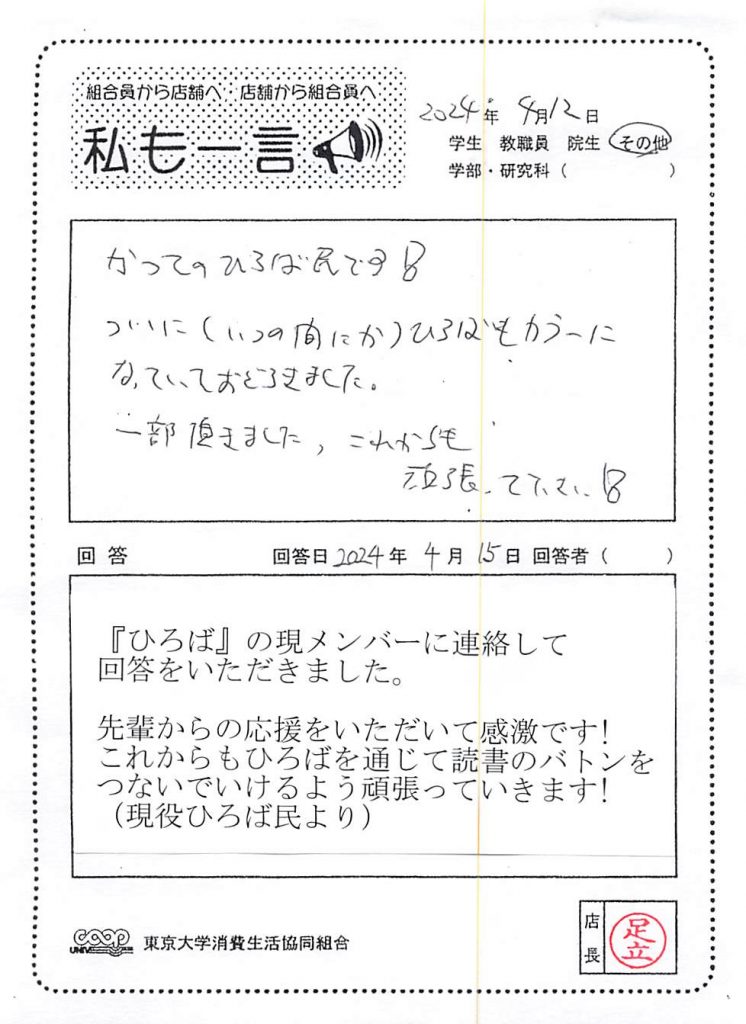 組合員から店舗へ 店舗から組合員へ
私も一言
2024年 4月12日
学生 教職員 院生 その他
学部・研究科( )
かつてのひろば民です!!
ついに(いつの間にか)ひろばもカラーに
なっていておどろきました。
一部頂きました, これからも
頑張って下さい!!
回答 回答日 2024年 4月 15日 回答者( )
『ひろば』の現メンバーに連絡して
回答をいただきました。
先輩からの応援をいただいて感激です!
これからもひろばを通じて読書のバトンを
つないでいけるよう頑張っていきます!
(現役ひろば民より)
UNIV coop 東京大学消費生活協同組合
店長 足立